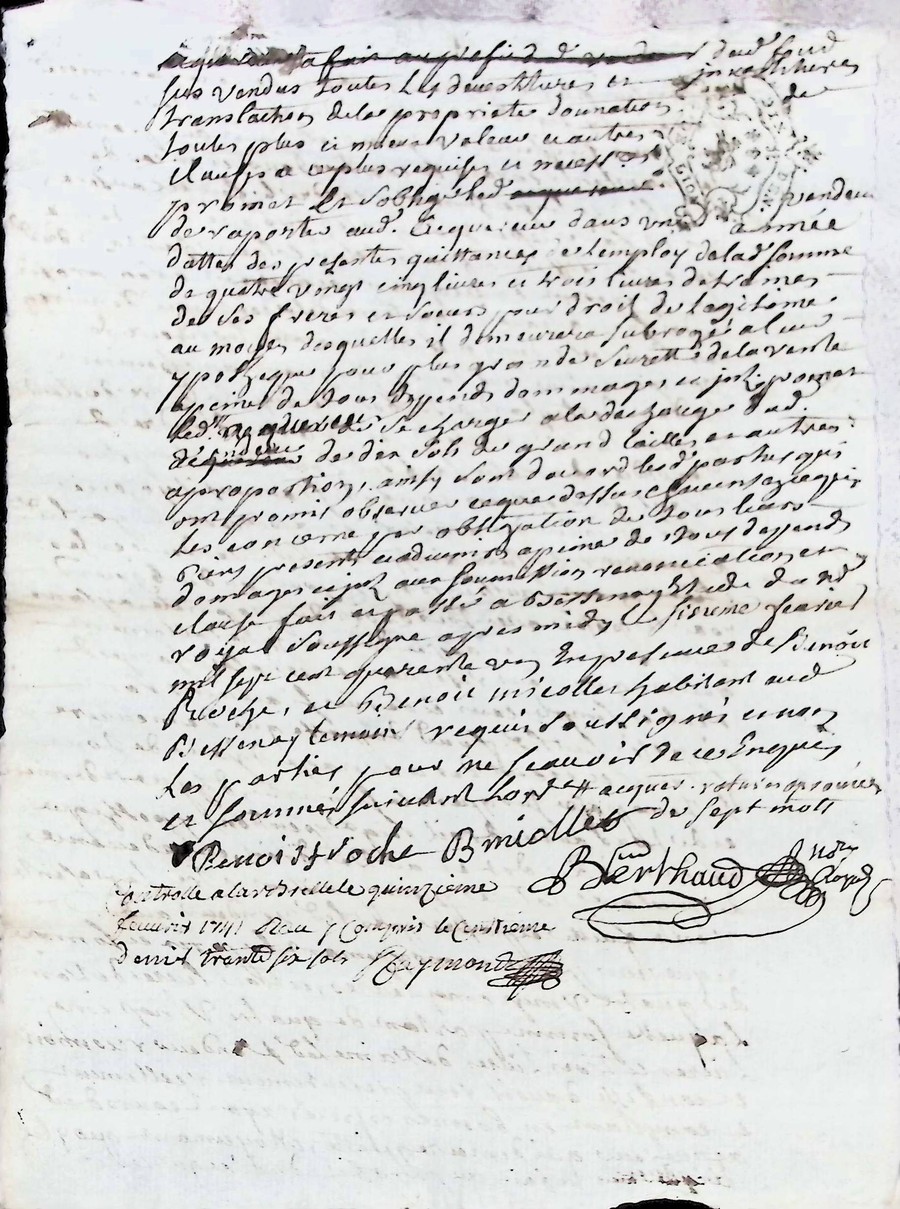 dud. fond
sus vendus toutes les devestitures et investitures
translation de la proprieté donnation de
toutes plus et mieux valeur et autres
clauses a ce plus requises et necess.res
promet et s'oblige led. vendeur
de raporter aud. acquereur dans une année
datte des presentes quittances de l'employ de lad. somme
de quatre vingt cinq livres et trois livres detraines
de ses freres et soeurs pour droit de legitime
au moyen desquelles il demeurera subrogé a leur
ypotheque pour plus grande seuretté de la vente
a peine de tous depends dommages et int. promet
led. acquereur de se charger a la décharge dud.
vendeur de dix sols de grand tailles et autres
a proportion, ainsy sont daccord led. parties qui
ont promis observer ce que dessus chacun en ce qui
les concerne par obligation de tous leurs
biens presents et advenir a peine de tous depends
domages et int. aux soumission renonciation et
clause fait et passé a Bessenay etude du no.re
royal soussigné apres midy le sixieme fevrier
mil sept cent quarante un En presence de Benoit
Roche, et Benoit micollet habitant aud.
Bessenay temoins requis soussignés et non
les parties pour ne sçavoir de ce Enquis
et sommés suivant l'ord.ce
de sept mots
Benoist roche B micollet
Berthaud No.re Royal
Controllé a larbrelle le quinzieme
fevrier 1741 Recu y Compris le Centieme
denier trente six sols Raymond